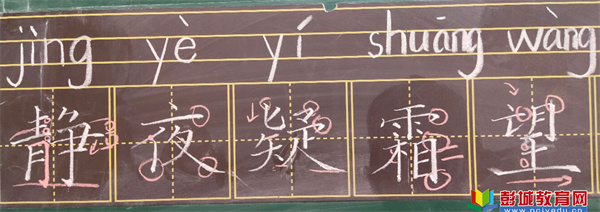 jìng yè yí shuāng wàng
静 夜 疑 霜 望
彭城教育网
www.pcjyedu.cn